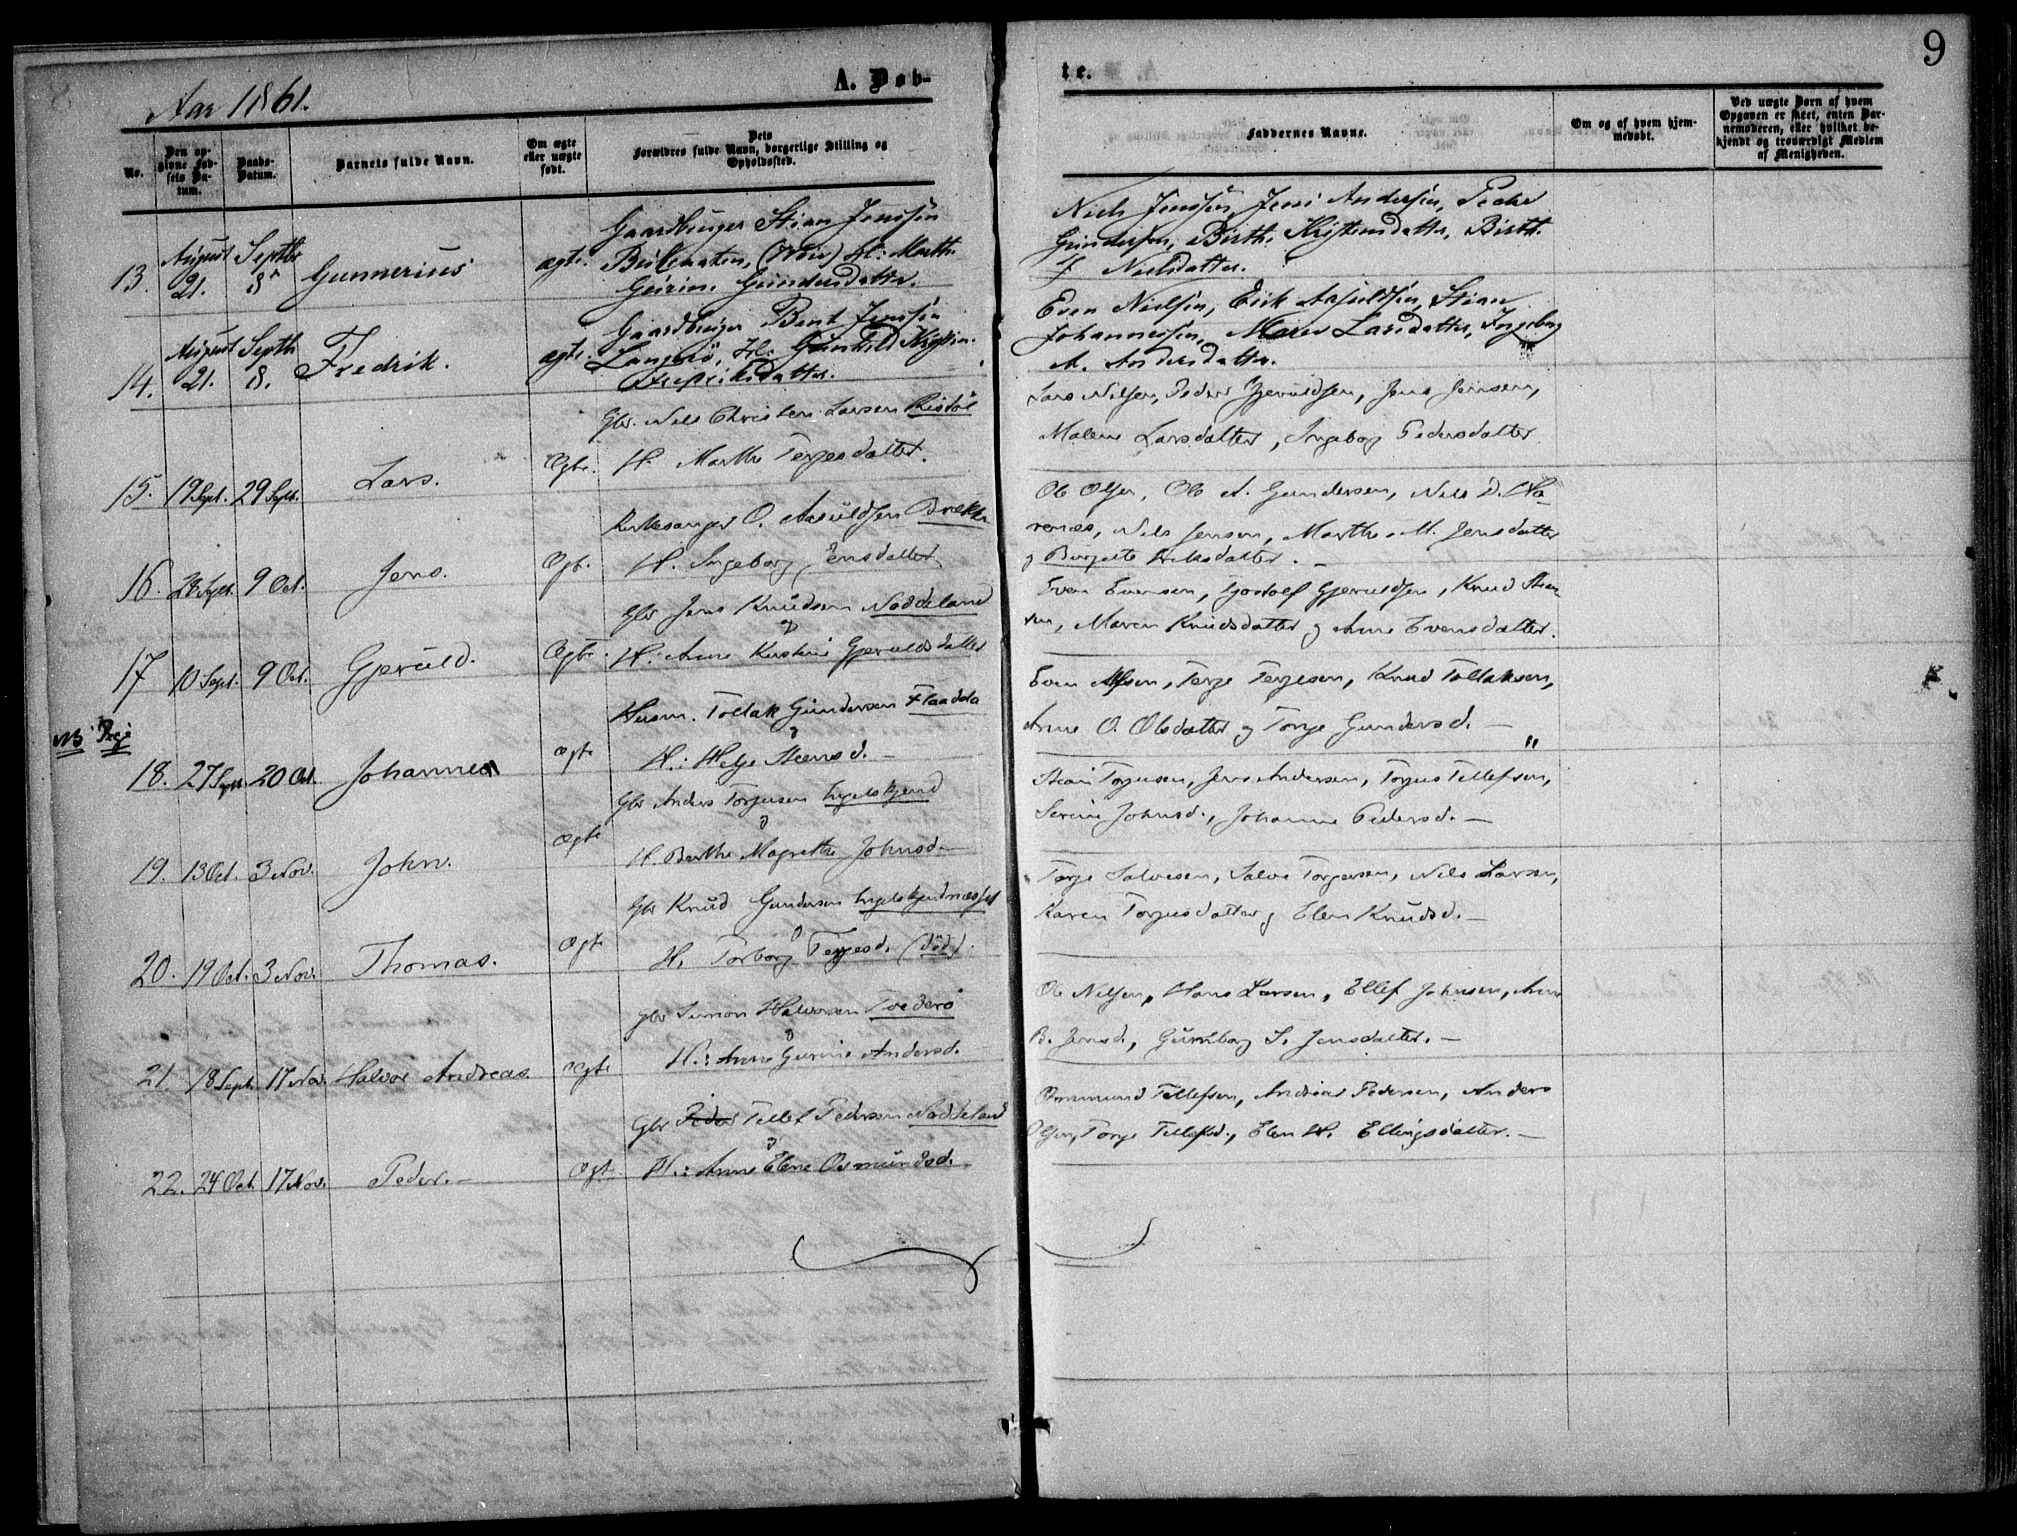 9
Aar 1861.
A. Døb-
te.
No.
Den op-
givne Fød-
sels Da-
tum.
Daabs-
Datum.
Barnets fulde Navn.
Om ægte
eller uægte
født.
Dets
Forældres fulde Navn, borgerlige Stilling og
Opholdssted.
Faddernes Navne.
Om og af hvem hjem-
medøbt.
Ved uægte Børn af hvem
Opgaven er skeet, enten Bar-
nemoderen, eller hvilket be-
kjendt og troværdigt Medlem
af Menigheden.
13.
August
21.
Septbr
8
Gunnerius
ægte.
Gaardbruger Stian Jenssen
H: Marthe
Gurine Gundersdatter.
Niels Jenssen, Jens Andersen, Peder
Gundersen, Birthe Kristensdatter, Birthe
Nielsdatter.
14.
August
21.
Septb
8.
Fredrik.
ægte.
Gaardbruger Bent Jenssen
H: Gunhild Kristin.
Fredriksdatter.
Even Nielsen, Erik Asjuldsen, Stian
Johannessen, Maren Larsdatter, Ingeborg
A. Andersdatter.
15.
19 Sept.
29 Sept.
Lars.
Ægte.
Gbr. Nils Christen Larsen Ristøl
H. Marthe Terjesdatter.
Lars Nilsen, Peder Gjeruldsen, Jens Jensen,
Malene Larsdatter, Ingeborg Pedersdatter
16.
28 Sept.
9 Oct.
Jens.
Ægte.
Kirkesanger O. Aasuldsen Brække
H. Ingeborg Jensdatter
Ole Olsen, Ole A. Gundersen, Nils D. Na-
renæs, Nils Jensen, Marthe M. Jensdatter
g Birgitte Eriksdatter. -
17
10 Sept.
9 Oct.
Gjeruld.
Ægte.
Gbr Jens Knudsen Naddeland
H: Anne Kirstine Gjeruldsdatter
Even Evensen, Gjostolf Gjeruldsen, Knud Stian-
sen, Maren Knudsdatter g Anne Evensdatter.
NB Pige
18.
27 Sept.
20 Oct.
Johanne
ægte
Husm. Tollak Gundersen Flaadda
H.: Helje Steensd. -
Even Alfsen, Terje Terjesen, Knud Tollaksen,
Anne O. Olsdatter g Torje Gundersd. -
19.
13 Oct.
3 Nov.
John.
ægte
Gbr Anders Torjusen Engelskjønd
H. Berthe Magrethe Johnsd. -
Stian Torjusen, Jens Andersen, Torjus Tellefsen,
Serine Johnsd., Johanne Pedersd. -
20.
19 Oct.
3 Nov.
Thomas.
Ægte
Gbr Knud Gundersen Engelskjøndnæsset
H. Torborg Terjesd. (død).
Terje Salvesen, Salve Torgersen, Nils Larsen,
Karen Torjusdatter g Elen Knudsd. -
21.
18 Sept.
17 Nov.
Halvor Andreas.
Ægte
Gbr Simon Halvorsen Tvederø
H.: Anne Gurine Andersd. -
Ole Nilsen, Hans Larsen, Ellef Johnsen, Anne
B. Jensd., Gunborg S. Jensdatter. -
22.
24 Oct.
17 Nov.
Peder. -
Ægte
Gbr Peder Tellef Pedersen Naddeland
H.: Anne Elene Osmundsd.
Ommund Tellefsen, Andreas Pedersen, Anders
Olsen, Torje Tellefsd., Elen H. Ellingsdatter. -